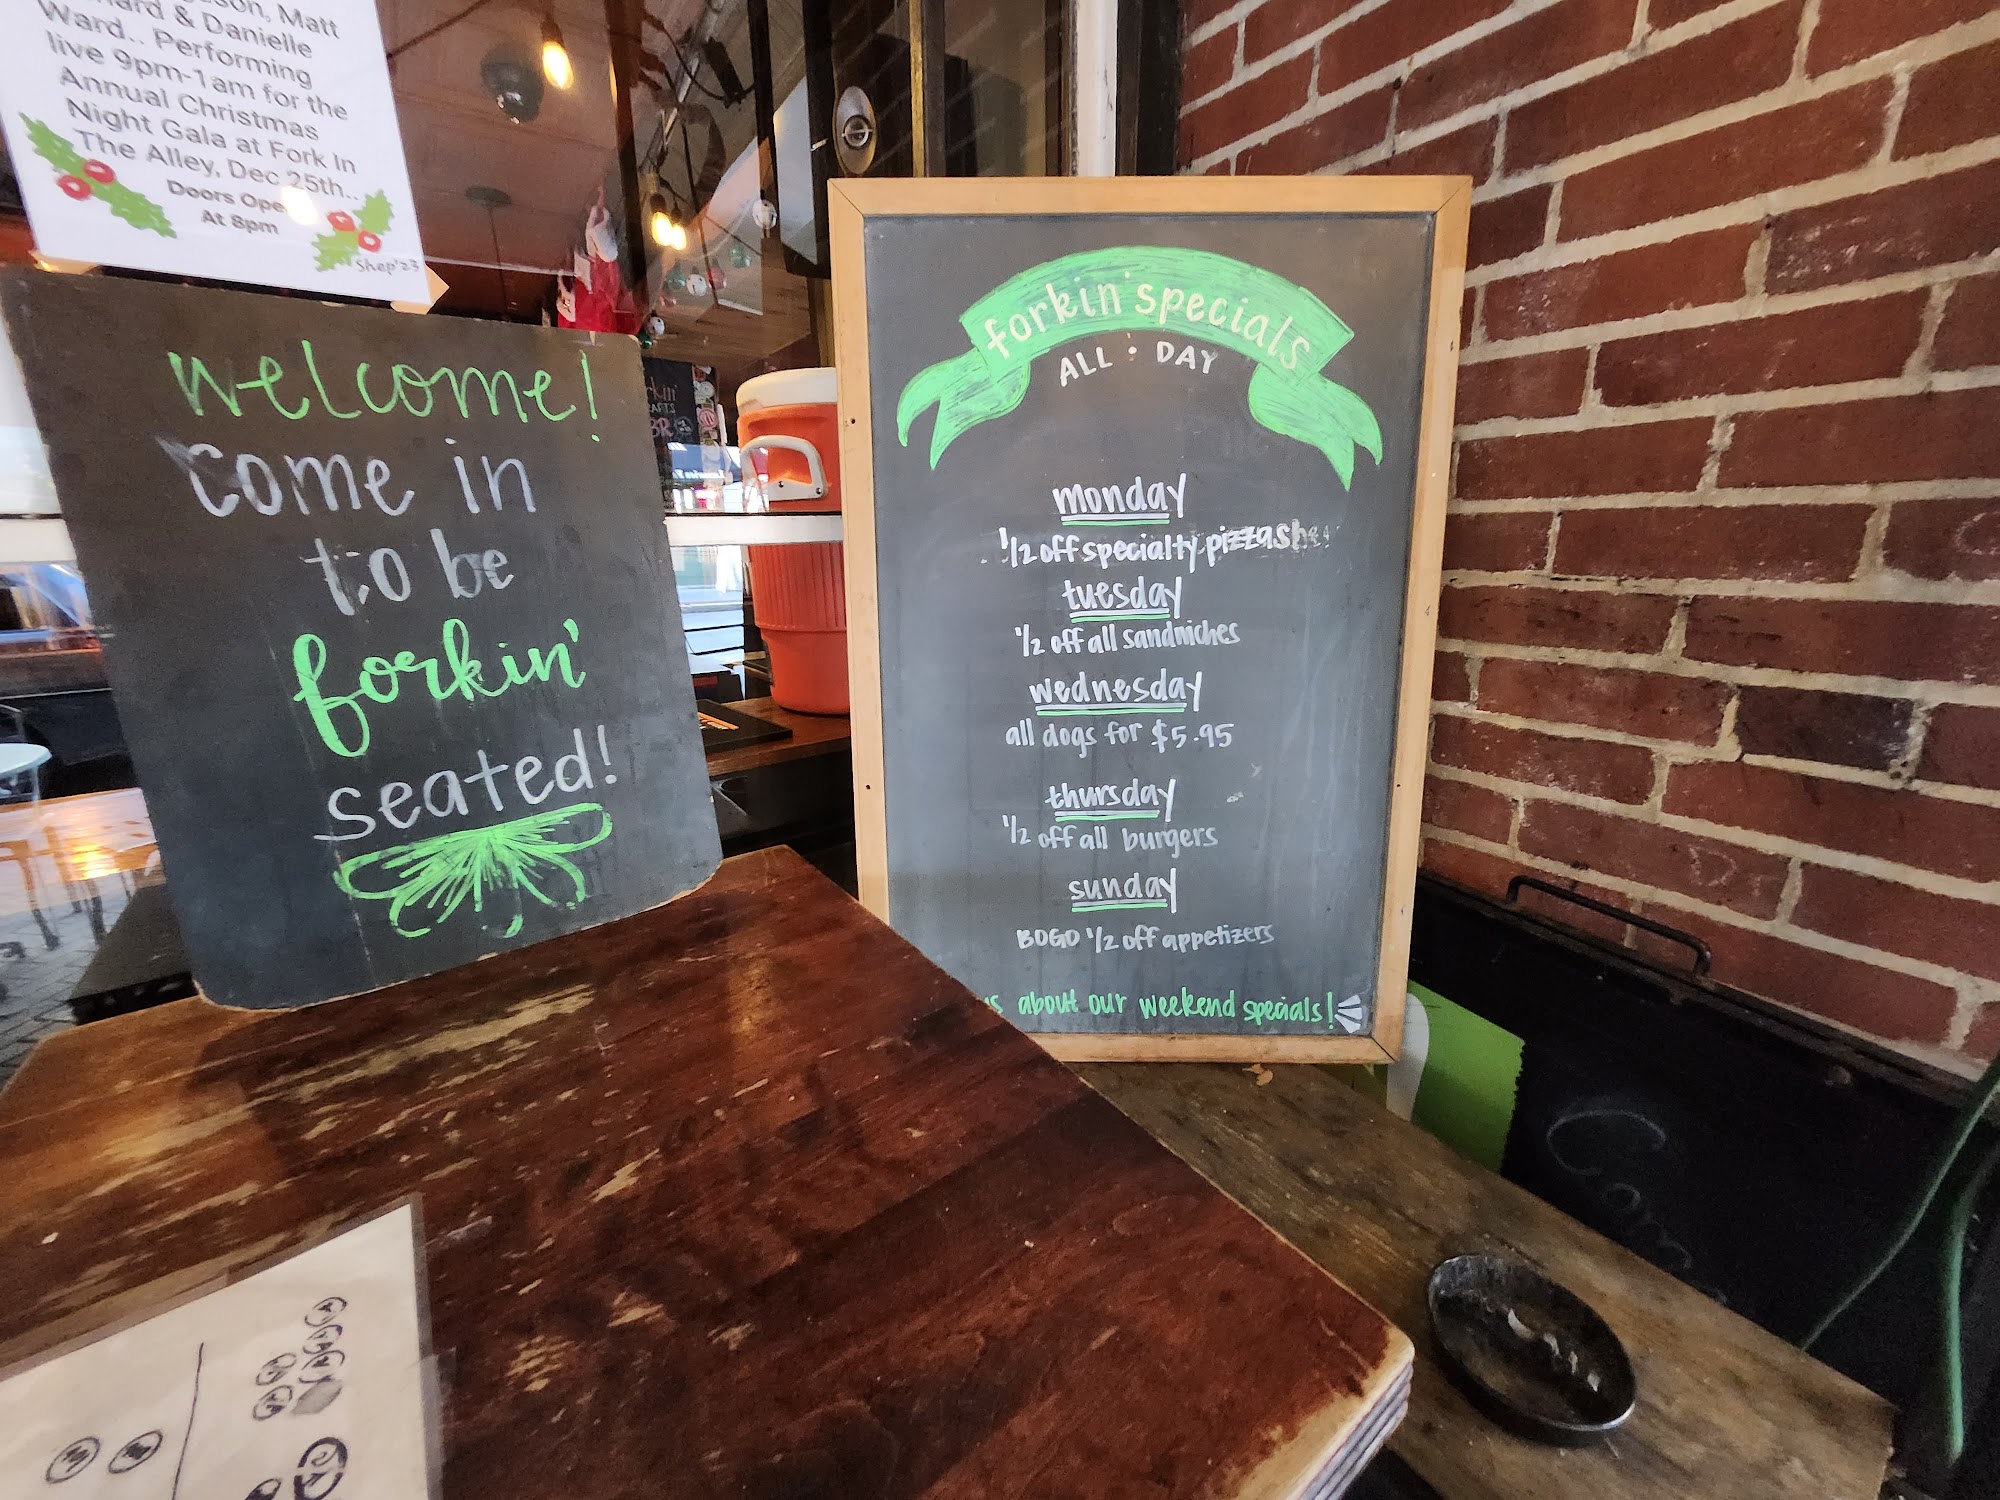 Matt
& Danielle
Ward.. Performing
live 9pm-1am for the
Annual Christmas
Night Gala at Fork In
The Alley, Dec 25th..
Doors Open
At 8pm
Shep'23
welcome!
come in
to be
forkin'
seated!
forkin' specials
ALL · DAY
monday
1/2 off specialty pizzas
tuesday
1/2 off all sandwiches
wednesday
all dogs for $5.95
thursday
1/2 off all burgers
sunday
BOGO 1/2 off appetizers
about our weekend specials!